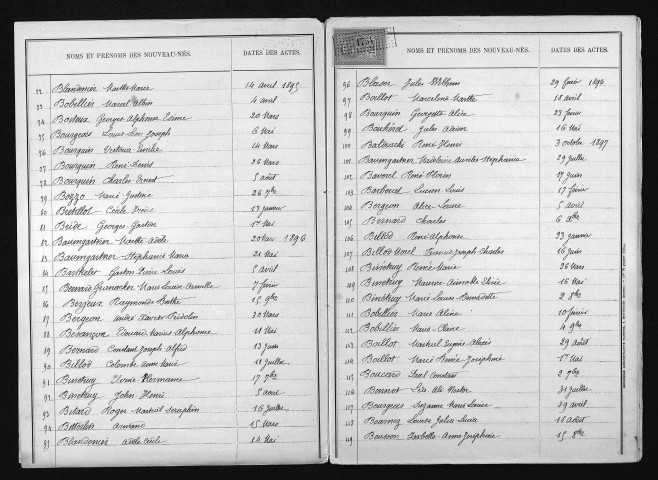 NOMS ET PRÉNOMS DES NOUVEAU-NÉS. DATES DES ACTES.
72 Blandenier Marthe Marie 14 avril 1895
73 Bobellier Marcel Albin 4 avril
74 Georges Alphonse 20 Mars
75 Bourgeois Louis Léon Joseph 6 Mai
76 Bourquin Victoria Emilie 14 Mars
77 Bourquin René Denis 26 Mars
78 Bourquin Charles Ernest 5 août
79 Bozzo Marie Justine 26 7bre
80 Bretillot Cécile Irène 13 janvier
81 Bride Georges Gaston 1er Mai
82 Baumgartner Marthe Adèle 20 Mars 1896
83 Baumgartner Stéphanie Maria 21 Mai
84 Barthelet Gaston Pierre Louis 5 avril
85 Marie Louise Camille 7 février
86 Berjeux Raymonde Berthe 15 9bre
87 Bergeon André Xavier Fridolin 30 Mars
88 Besançon Edouard Marius Alphonse 11 Mai
89 Bernard Constant Joseph Alfred 13 juin
90 Billod Colombe Anne Marie 11 juillet
91 Binetruy Hermanne 17 7bre
92 Binetruy John Henri 5 août
93 Bitard Roger Martial Séraphin 16 juillet
94 Armand 15 Mars
95 Blandenier Adèle Cécile 14 Mai
NOMS ET PRÉNOMS DES NOUVEAU-NÉS. DATES DES ACTES.
96 Blaser Jules Wilhem 29 1896
97 Boillot Marceline Marthe 18 avril
98 Bourquin Georgette Alice 23
99 Jules 16 Mai
100 René Henri 3 octobre 1897
101 Baumgartner Stéphanie 29 juillet
102 Bavoret René Florin 17 juin
103 Barboud Lucien Louis 17 février
104 Bergeon Alice Laure 5 avril
105 Bernard Charles 6 Xbre
106 Billod René Alphonse 23 janvier
107 Billod Morel Francis Joseph Charles 16 juin
108 Binetruy Renée Marie 26 Mars
109 Binetruy Maurice 16 Mai
110 Binetruy Marie Louise 2 8bre
111 Bobellier Marie Aline 10 février
112 Bobellier Marie 4 9bre
113 Boillot Martial Eugène Alexis 29 août
114 Boillot Marie Renée Joséphine 1er Mai
115 Boucard Constant 2 7bre
116 Bonnet 31 juillet
117 Bourgeois Suzanne Marie Louise 29 avril
118 Bournez Louise Julia Lucie 18 août
119 Isabelle Anna Joséphine 15 8bre